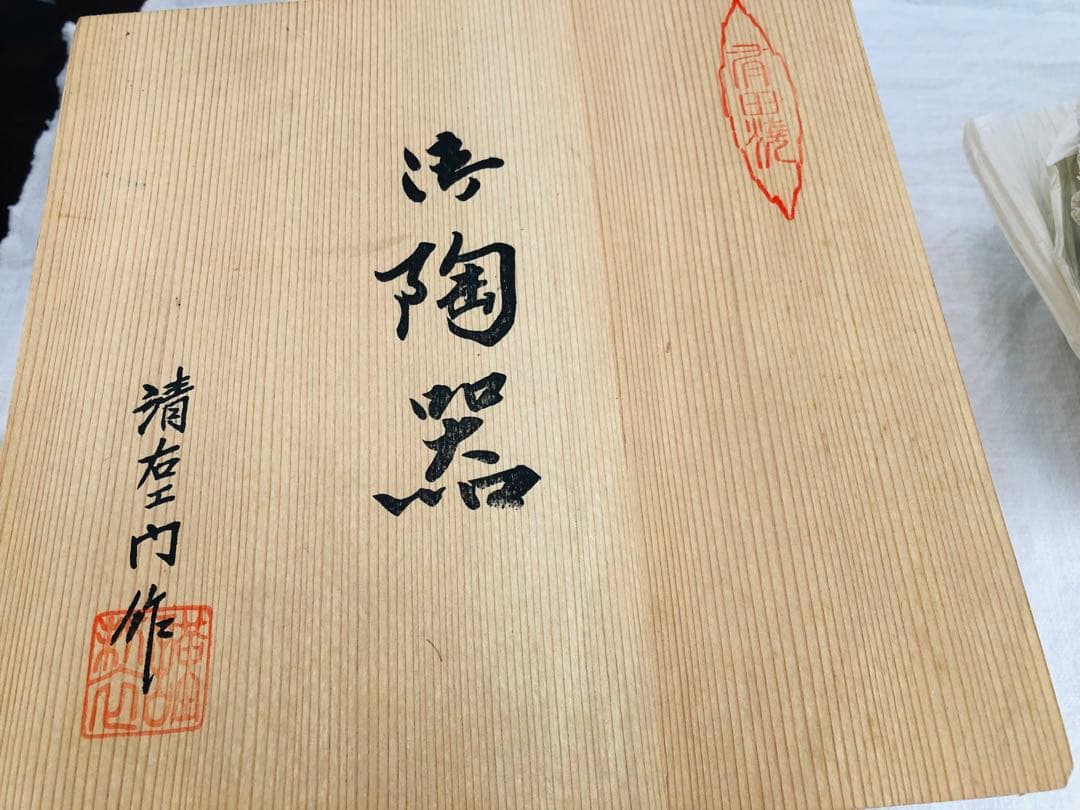 有田焼
御陶器
清右エ門作